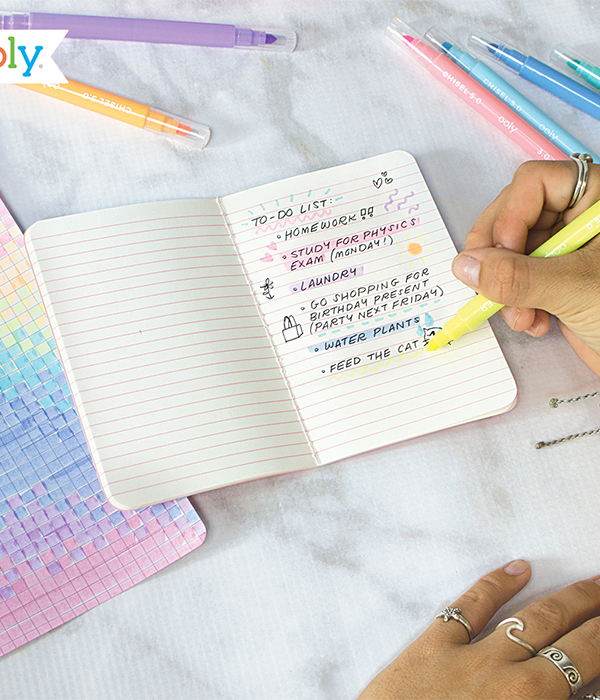 oly
CHISEL 5.0
CHISEL 5.0 ooly
CHISEL 5.0 ooly
TO-DO LIST:
• HOMEWORK !!
• STUDY FOR PHYSICS
EXAM (MONDAY!)
• LAUNDRY
• GO SHOPPING FOR
BIRTHDAY PRESENT
(PARTY NEXT FRIDAY)
• WATER PLANTS
• FEED THE CAT